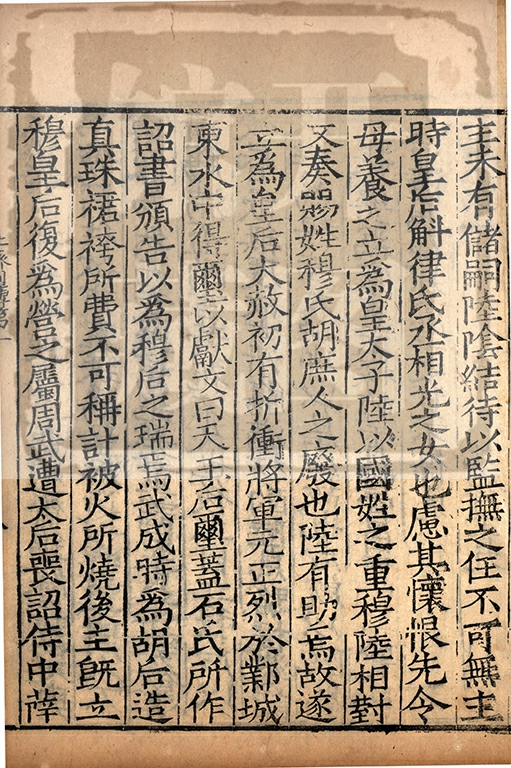 主未有儲嗣陸陰結待以監撫之任不可無主
時皇后斛律氏丞相光之女也慮其懷恨先令
母養之立為皇太子陸以國姓之重穆陸相對
又奏賜姓穆氏胡庶人之廢也陸有助焉故遂
立為皇后大赦初有折衝將軍元正烈於鄴城
東水中得璽以獻文曰天王后璽蓋石氏所作
詔書頒告以為穆后之瑞焉武成時為胡后造
真珠裙袴所費不可稱計被火所燒後主既立
穆皇后復為營之屬周武遭太后喪詔侍中薛